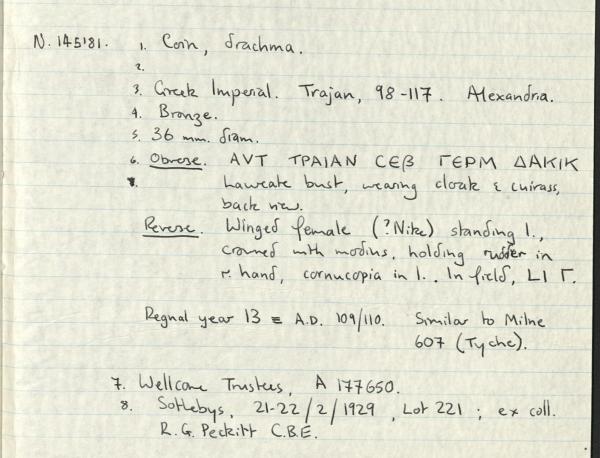 N. 145'81. 1. Coin, drachma.
2.
3. Greek Imperial. Trajan, 98-117. Alexandria.
4. Bronze.
5. 36 mm. diam.
6. Obverse. ΑVΤ ΤΡΑΙΑΝ CЄβ ΓЄΡΜ ΔΑΚΙΚ
Laureate bust, wearing cloak & cuirass,
back view.
Reverse. Winged female (?Nike) standing l.,
crowned with modius, holding rudder in
r. hand, cornucopia in l.. In field, LI Γ.
Regnal year 13 = A.D. 109/110. Similar to Milne
607 (Tyche).
7. Wellcome Trustees, A 177650.
8. Sothebys, 21-22/2/1929, Lot 221; ex coll.
R.G. Peckitt C.B.E.